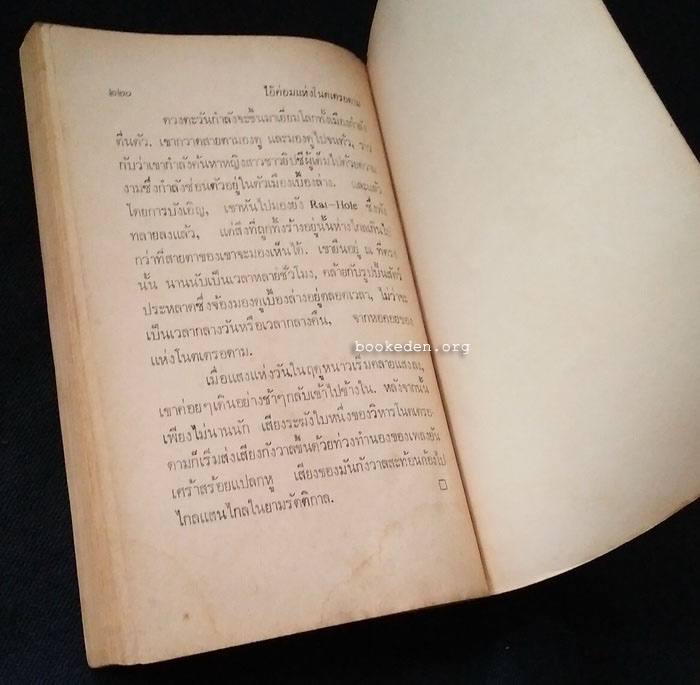 ๒๒๐ ไอ้ค่อมแห่งโนตเตรอดาม
ดวงตะวันกำลังจะขึ้นมาเยี่ยมโลกทั้งเมืองกำลัง
ตื่นตัว. เขากวาดสายตามองดู และมองดูไปจนทั่ว, ราว
กับว่าเขากำลังค้นหาหญิงสาวชาวยิปซีผู้เต็มไปด้วยความ
งามซึ่งกำลังซ่อนตัวอยู่ในตัวเมืองเบื้องล่าง. และแล้ว
โดยการบังเอิญ, เขาหันไปมองยัง Rat-Hole ซึ่งพัง
ทลายลงแล้ว, แต่สิ่งที่ถูกทิ้งร้างอยู่นั้นห่างไกลเกินไป
กว่าที่สายตาของเขาจะมองเห็นได้. เขายืนอยู่ ณ ที่ตรง
นั้น นานนับเป็นเวลาหลายชั่วโมง, คล้ายกับรูปปั้นสัตว์
ประหลาดซึ่งจ้องมองดูเบื้องล่างอยู่ตลอดเวลา, ไม่ว่าจะ
เป็นเวลากลางวันหรือเวลากลางคืน, จากหอคอยของ
แห่งโนตเตรอดาม.
bookeden.org
เมื่อแสงแห่งวันในฤดูหนาวเริ่มคลายแสงลง,
เขาค่อยๆเดินอย่างช้าๆกลับเข้าไปข้างใน. หลังจากนั้น
เพียงไม่นานนัก เสียงระฆังใบหนึ่งของวิหารโนตเตรอ-
ดามก็เริ่มส่งเสียงกังวาลขึ้นด้วยท่วงทำนองของเพลงอัน
เศร้าสร้อยแปลกหู เสียงของมันกังวาลสะท้อนก้องไป
ไกลแสนไกลในยามรัตติกาล.